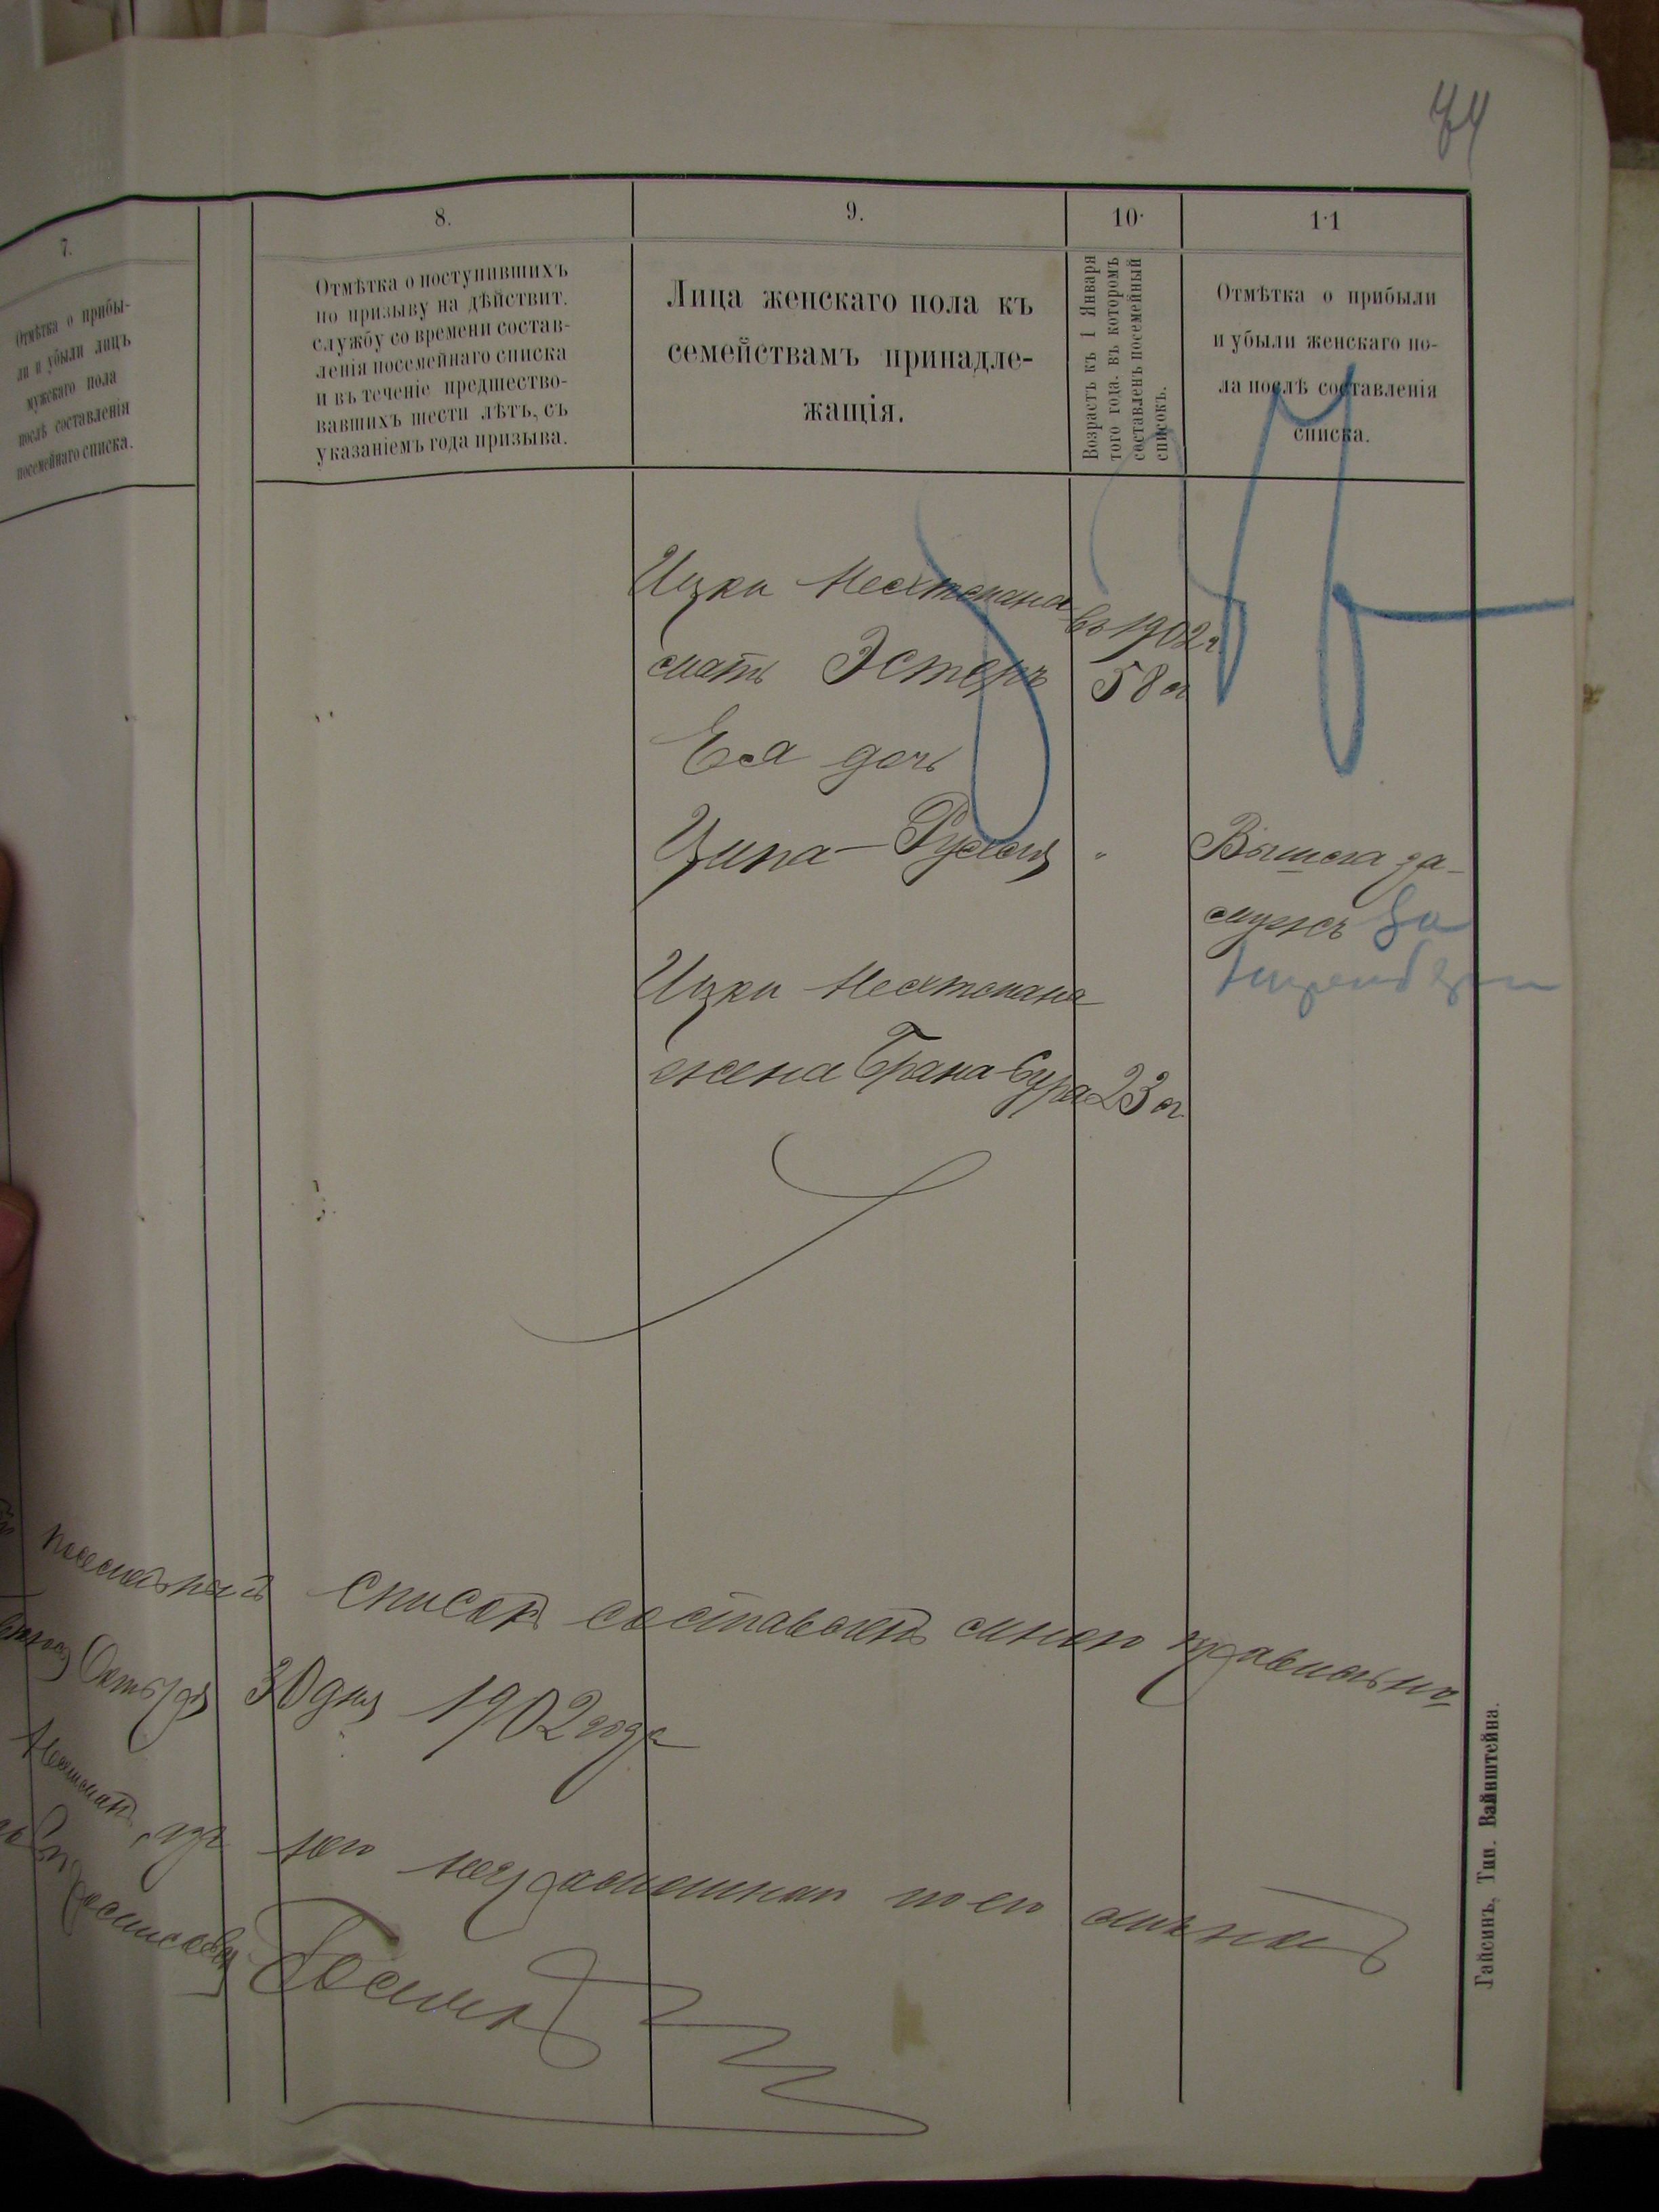 74
7.
8.
9.
10.
11
Отмѣтка о прибы-
ли и убыли лицъ
мужскаго пола
послѣ составленія
посемейнаго списка.
Отмѣтка о поступившихъ
по призыву на дѣйствит.
службу со времени состав-
ленія посемейнаго списка
и въ теченіе предшество-
вавшихъ шести лѣтъ, съ
указаніемъ года призыва.
Лица женскаго пола къ
семействамъ принадле-
жащія.
Возрастъ къ 1 Января
того года, въ которомъ
составленъ посемейный
списокъ.
Отмѣтка о прибыли
и убыли женскаго по-
ла послѣ составленія
списка.
Ицки Нехтмана въ 1902 г.
мать Эстеръ 58 л
Ея дочь
Ципа-Рухля " Вышла за-
мужъ За
Ицки Нехтмана
жена Брана-Сура 23 л.
посемейный списокъ составленъ мною правильно
Октября 30 дня 1902 года
него неграмотнаго по его
росписался
Гайсинъ, Тип. Вайнштейна.